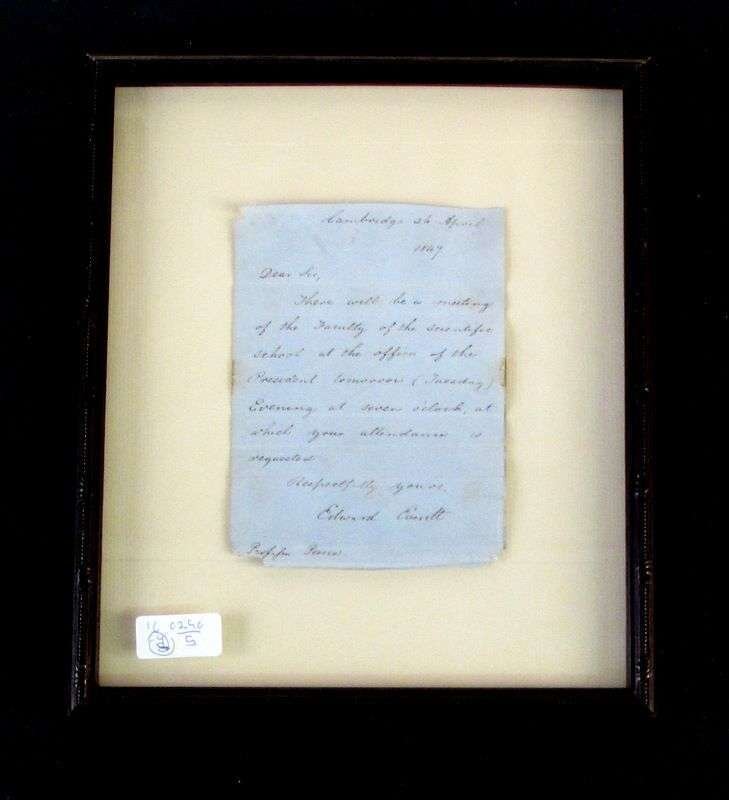 Cambridge 26 April
1847
Dear Sir,
There will be a meeting
of the Faculty of the scientific
school at the office of the
President tomorrow (Tuesday)
Evening at seven o'clock, at
which your attendance is
requested.
Respectfully yours,
Edward Everett
Professor Peirce
0240
5